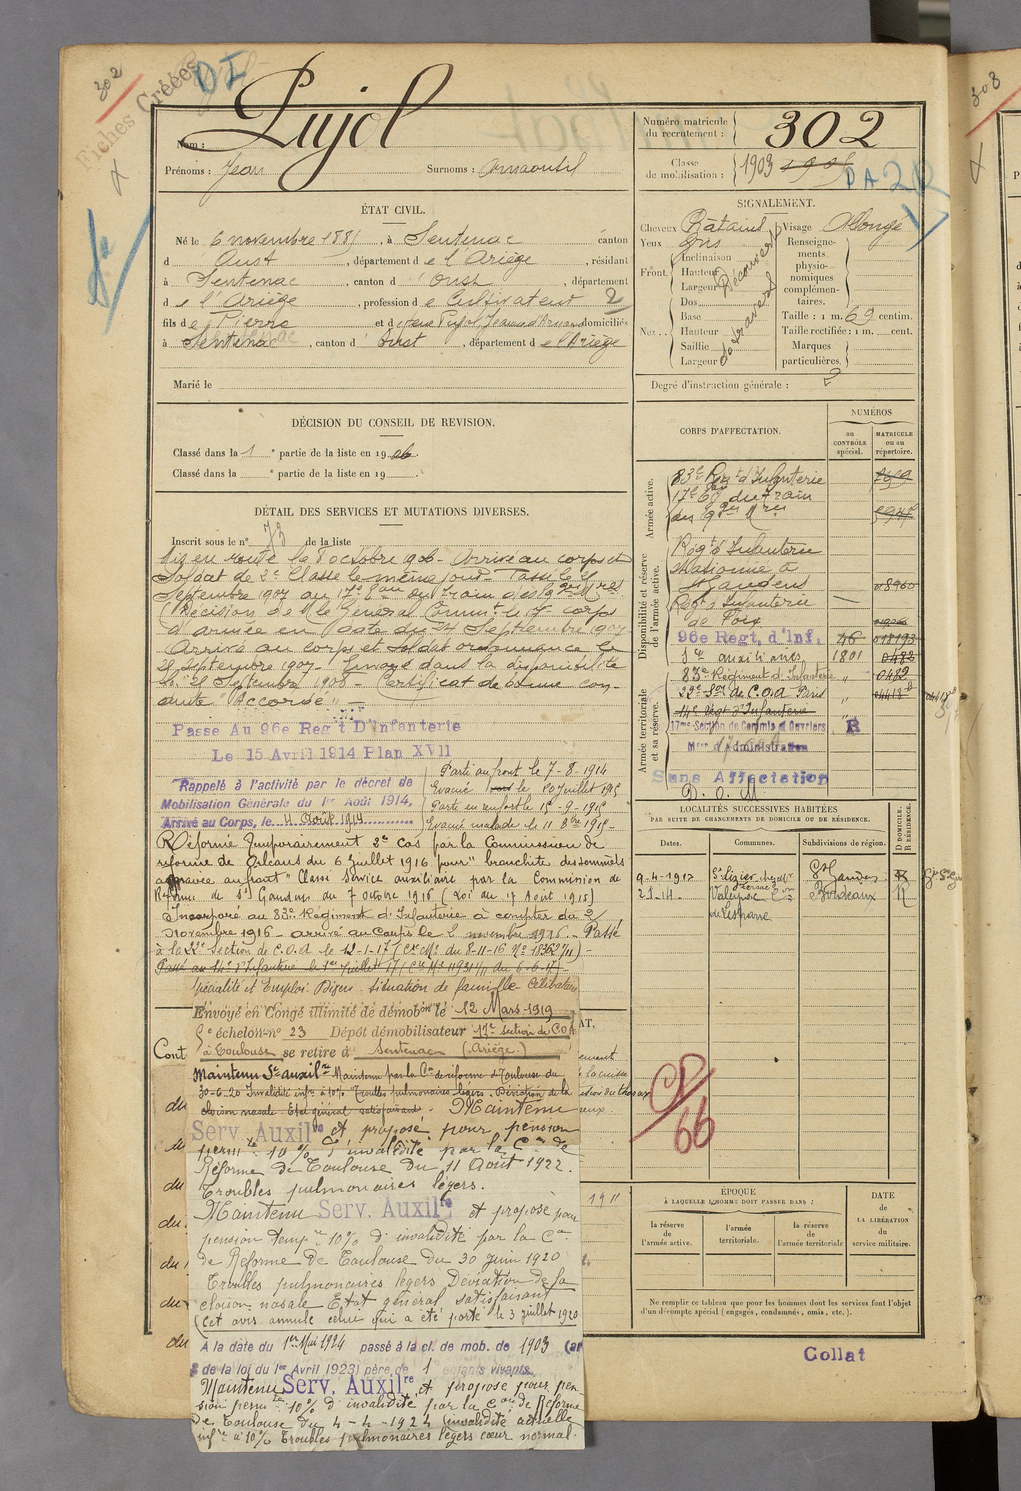 302
Fiches Créées
DI
Nom : Pujol
Prénoms : Jean Surnoms :
Numéro matricule du recrutement : 302
Classe de mobilisation : 1903
ÉTAT CIVIL.
Né le 6 novembre 1885, à Sentenac canton
d'Oust, département de l'Ariège, résidant
à Sentenac, canton d'Oust, département
de l'Ariège, profession de Cultivateur 2
fils de Pierre et de domiciliés
à Sentenac, canton d'Oust, département de l'Ariège
Marié le
SIGNALEMENT.
Cheveux Châtains Visage Allongé
Yeux Gris
Front. Inclinaison Hauteur Largeur Découvert
Nez Dos Base Hauteur Saillie Largeur
Renseignements physionomiques complémentaires.
Taille : 1 m. 69 centim.
Taille rectifiée : 1 m. cent.
Marques particulières.
Degré d'instruction générale : 2
DÉCISION DU CONSEIL DE REVISION.
Classé dans la 1e partie de la liste en 1906.
Classé dans la e partie de la liste en 19
DÉTAIL DES SERVICES ET MUTATIONS DIVERSES.
Inscrit sous le n° 73 de la liste
Mis en route le 8 octobre 1906 - Arrivé au corps et
Soldat de 2e classe le même jour - Passé le
Septembre 1907 au 17e Eon du Train des Eqges Mres
(Décision de M le Général Commt le 17e corps
d'armée en date du 24 Septembre 1907
Arrivé au corps et soldat ordonnance le
Septembre 1907 - Envoyé dans la disponibilité
le Septembre 1908 - Certificat de bonne con-
duite "Accordé"
Passé Au 96e Regt D'Infanterie
Le 15 Avril 1914 Plan XVII
Rappelé à l'activité par le décret de
Mobilisation Générale du 1er Août 1914,
Arrivé au Corps, le 4 Août 1914
Parti au front le 7-8-1914
Evacué le 20 Juillet 1915
Parti en renfort le 15-9-1915
Evacué malade le 11 8bre 1915
Réformé Temporairement 2e cas par la Commission de
réforme de Orléans du 6 juillet 1916 pour "bronchite des sommets
aggravée au front" Classé Service auxiliaire par la Commission de
Réforme de St Gaudens du 7 octobre 1916 (Loi du 17 Août 1915)
Incorporé au 83e Régiment d'Infanterie à compter du 2
Novembre 1916 - arrivé au Corps le 2 novembre 1916 - Passé
à la 22e Section de C.O.A le 12-1-17 (Cre Mle du 8-11-16 No 18362 7/11)
Passé au 14e d'Infanterie le 1er juillet 17
Spécialité et Emploi : situation de famille Célibataire
Envoyé en Congé illimité de démobon le 12 Mars 1919
échelon no 23 Dépôt démobilisateur 17e section de COA
à Toulouse se retire à Sentenac (Ariège)
Maintenu Sce auxilre Maintenu par la Con de réforme de Toulouse du
30-6-20 Invalidité infre à 10% Troubles pulmonaires légers. Déviation de la
cloison nasale Etat général satisfaisant. Maintenu
Serv. Auxilre et proposé pour pension
permte 10 % d'invalidité par la Con de
Réforme de Toulouse du 11 Août 1922.
Troubles pulmonaires légers.
Maintenu Serv. Auxilre et proposé pour
pension tempre 10% d'invalidité par la Con
de Réforme de Toulouse du 30 juin 1920
Troubles pulmonaires légers Déviation de la
cloison nasale Etat général satisfaisant
(Cet avis annule celui qui a été porté le 3 juillet 1920
A la date du 1er Mai 1924 passé à la cl. de mob. de 1903 (art
de la loi du 1er Avril 1923) père de 1 enfants vivants.
Maintenu Serv. Auxilre et proposé pour pen-
sion permte 10% d'invalidité par la Con de Réforme
de Toulouse du 4-4-1924 (invalidité actuelle
infre à 10% Troubles pulmonaires légers cœur normal.
CORPS D'AFFECTATION.
NUMÉROS
au CONTRÔLE spécial.
MATRICULE ou au répertoire.
Armée active.
83e Rgt d'Infanterie
17e Eon du train
des Eqges Mres
Disponibilité et réserve de l'armée active.
Régt d'Infanterie
Stationné à
St Gaudens
Régt d'Infanterie
de Foix
96e Regt, d'Inf. 46 018193
Sce auxiliaires 1801 0482
Armée territoriale et sa réserve.
83e Régiment d'Infanterie " 0482
22e Son de C.O.A Paris
14e Régt d'Infanterie
17me Section de Commis et Ouvriers R
Mres d'Administration
Sans Affectation
D.O.M
LOCALITÉS SUCCESSIVES HABITÉES
PAR SUITE DE CHANGEMENTS DE DOMICILE OU DE RÉSIDENCE.
Dates. Communes. Subdivisions de région. D DOMICILE. R RÉSIDENCE.
9-4-1917 St Lizier St Gaudens R
21-14 Bordeaux R
de Lesparre
CP/66
ÉPOQUE
À LAQUELLE L'HOMME DOIT PASSER DANS :
la réserve de l'armée active.
l'armée territoriale.
la réserve de l'armée territoriale
DATE DE LA LIBÉRATION du service militaire.
Ne remplir ce tableau que pour les hommes dont les services font l'objet
d'un décompte spécial (engagés, condamnés, omis, etc.).
Collat
303